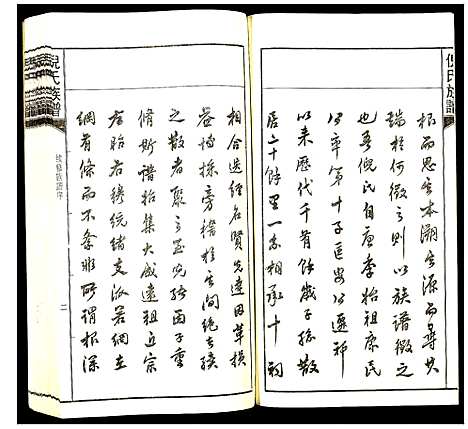 倪氏族譜
根而思其本溯其源而尋其
瑞於何徵之則以族譜徵之
也吾倪氏自唐李始祖康民
公率第十子匡公遜祁
以来歷代千有餘歲子孫散
居二十餘里一気相承十
相合迭經名賢先達因革損
益博採旁稽於其間绝者續
之散者聚之至完備而子重
修斯譜始集大成遠祖近宗
左昭右穆統緒支派若網在
綱有條而不紊非所謂根深
倪氏族譜
續修族譜序
二